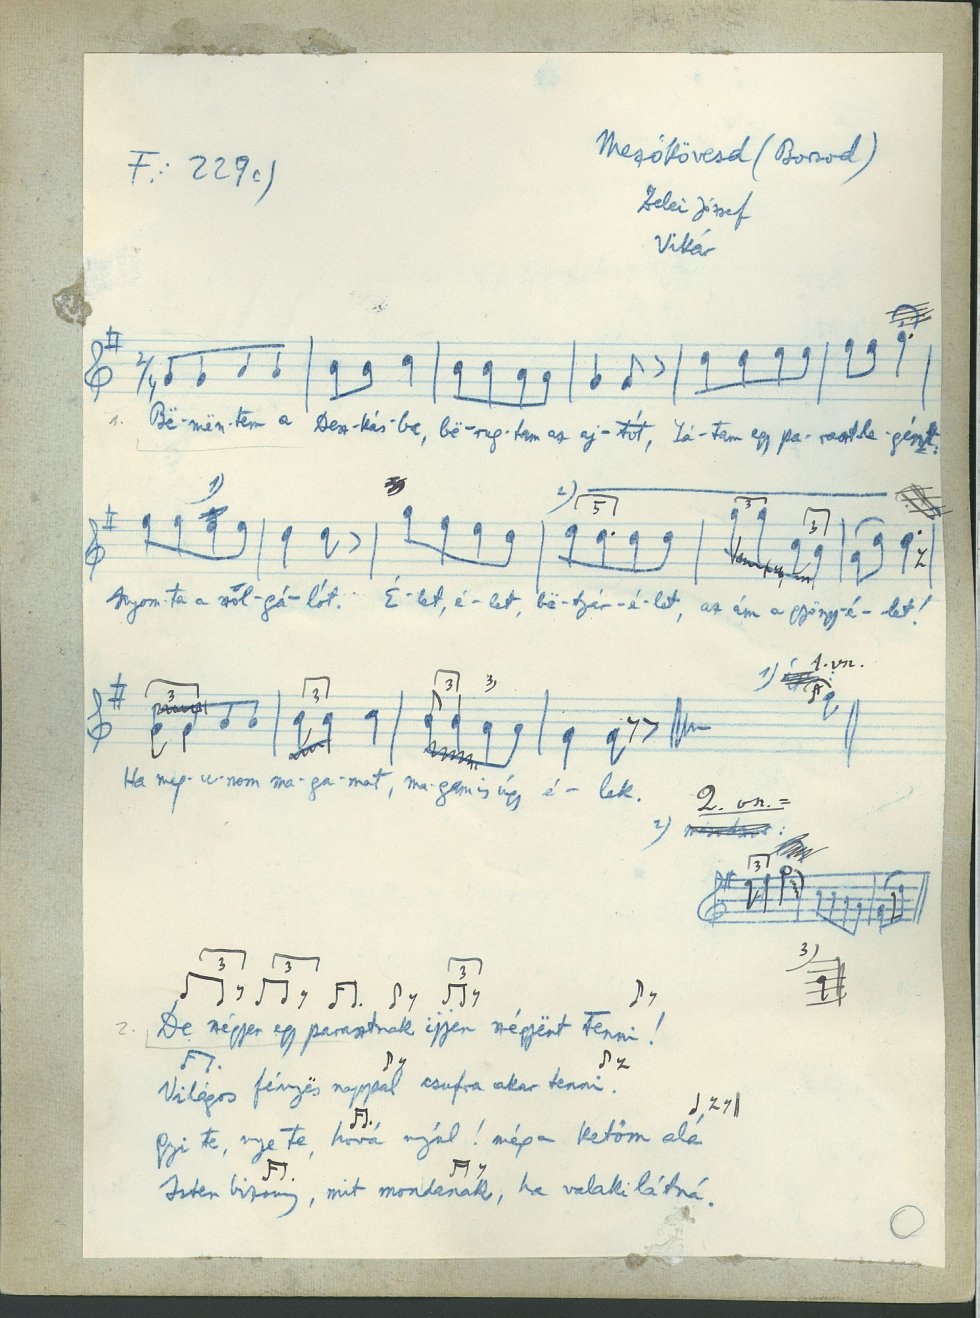 F.: 229c)
Mezőkövesd (Borsod)
Zelei József
Vikár
2/4
1. Bë-mën-tem a Desz-kás-be, bë-rug-tam az aj-tót, Lá-tam egy pa-raszt le-gényt:
1)
2) 5 3 3
Nyom-ta a szól-gá-lót. É-let, é-let, bë-tyár-é-let, az ám a gyöngy-é-let!
3 3 3 3)
1) 1. vsz.
Ha meg-u-nom ma-ga-mat, ma-gam is úgy é-lek.
2. vsz. =
2)
3
3)
3 3 3
2. De szépjen egy parasztnak ijjen szépjënt tenni!
Világos fényës nappal csufra akar tenni.
Gyi te, nye te, hová nyúl! még a ketőm alá
Isten bizony, mit mondanak, ha valaki látná.